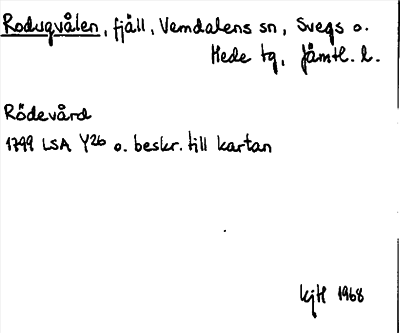 Rodugvålen, fjäll, Vemdalens sn, Svegs o.
Hede tg, Jämtl. l.
Rödevård
1799 LSA Y26 o. beskr. till kartan
kjH 1968